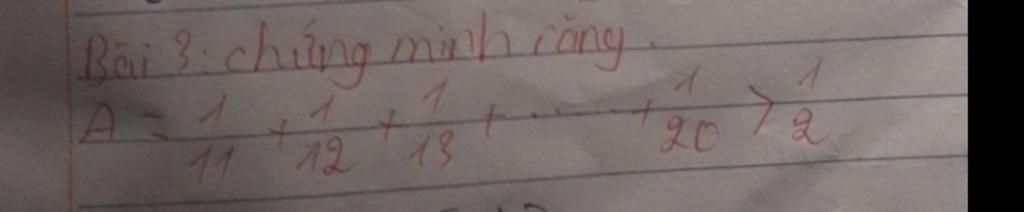 Bài 3: chứng minh rằng.
A = 1/11 + 1/12 + 1/13 + ...... + 1/20 > 1/2